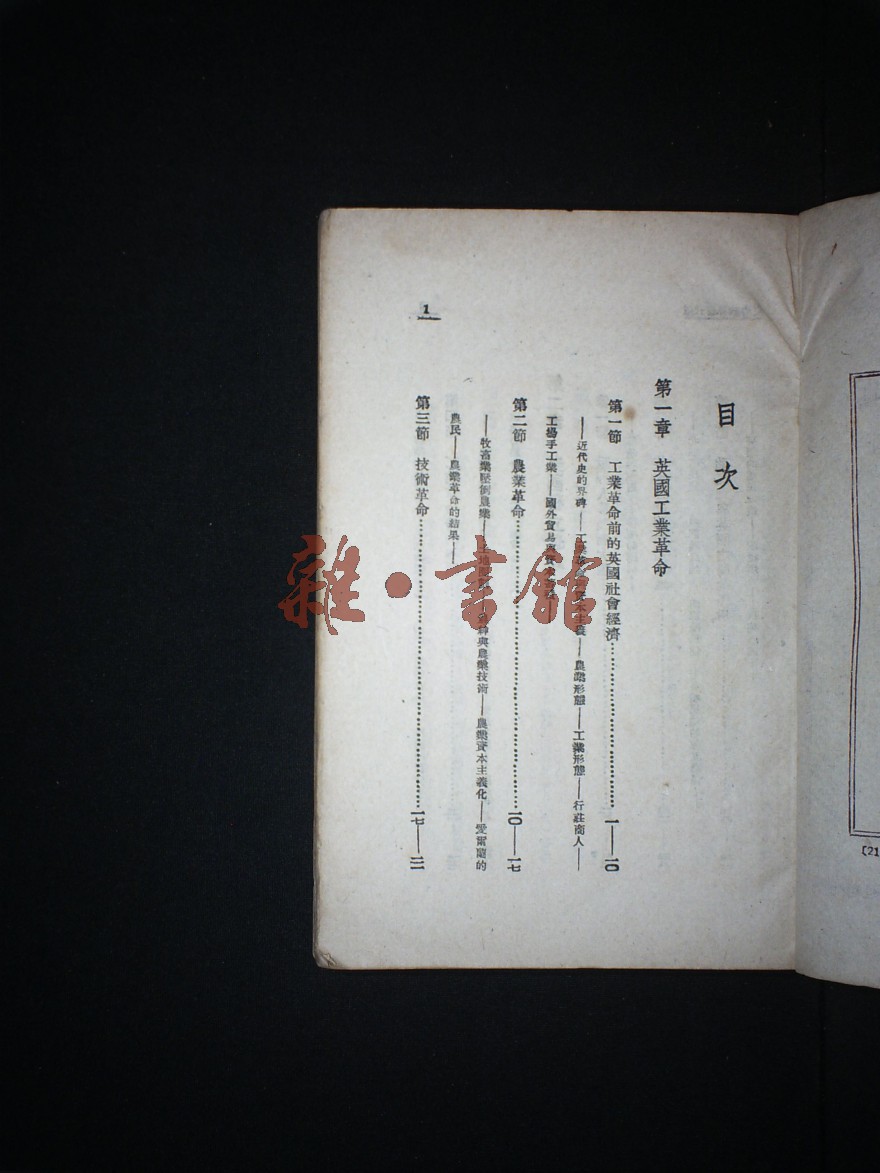 目次
第一章 英國工業革命
第一節 工業革命前的英國社會經濟……一——一〇
——近代史的界碑——工業革命與資本主義——農業形態——工業形態——行莊商人——
工場手工業——國外貿易與資本
第二節 農業革命……一〇——一七
——牧畜業壓倒農業——土地與農業技術——農業資本主義化——愛爾蘭的
農民——農業革命的結果——
第三節 技術革命……一七——二一
1
[21
雜·書館